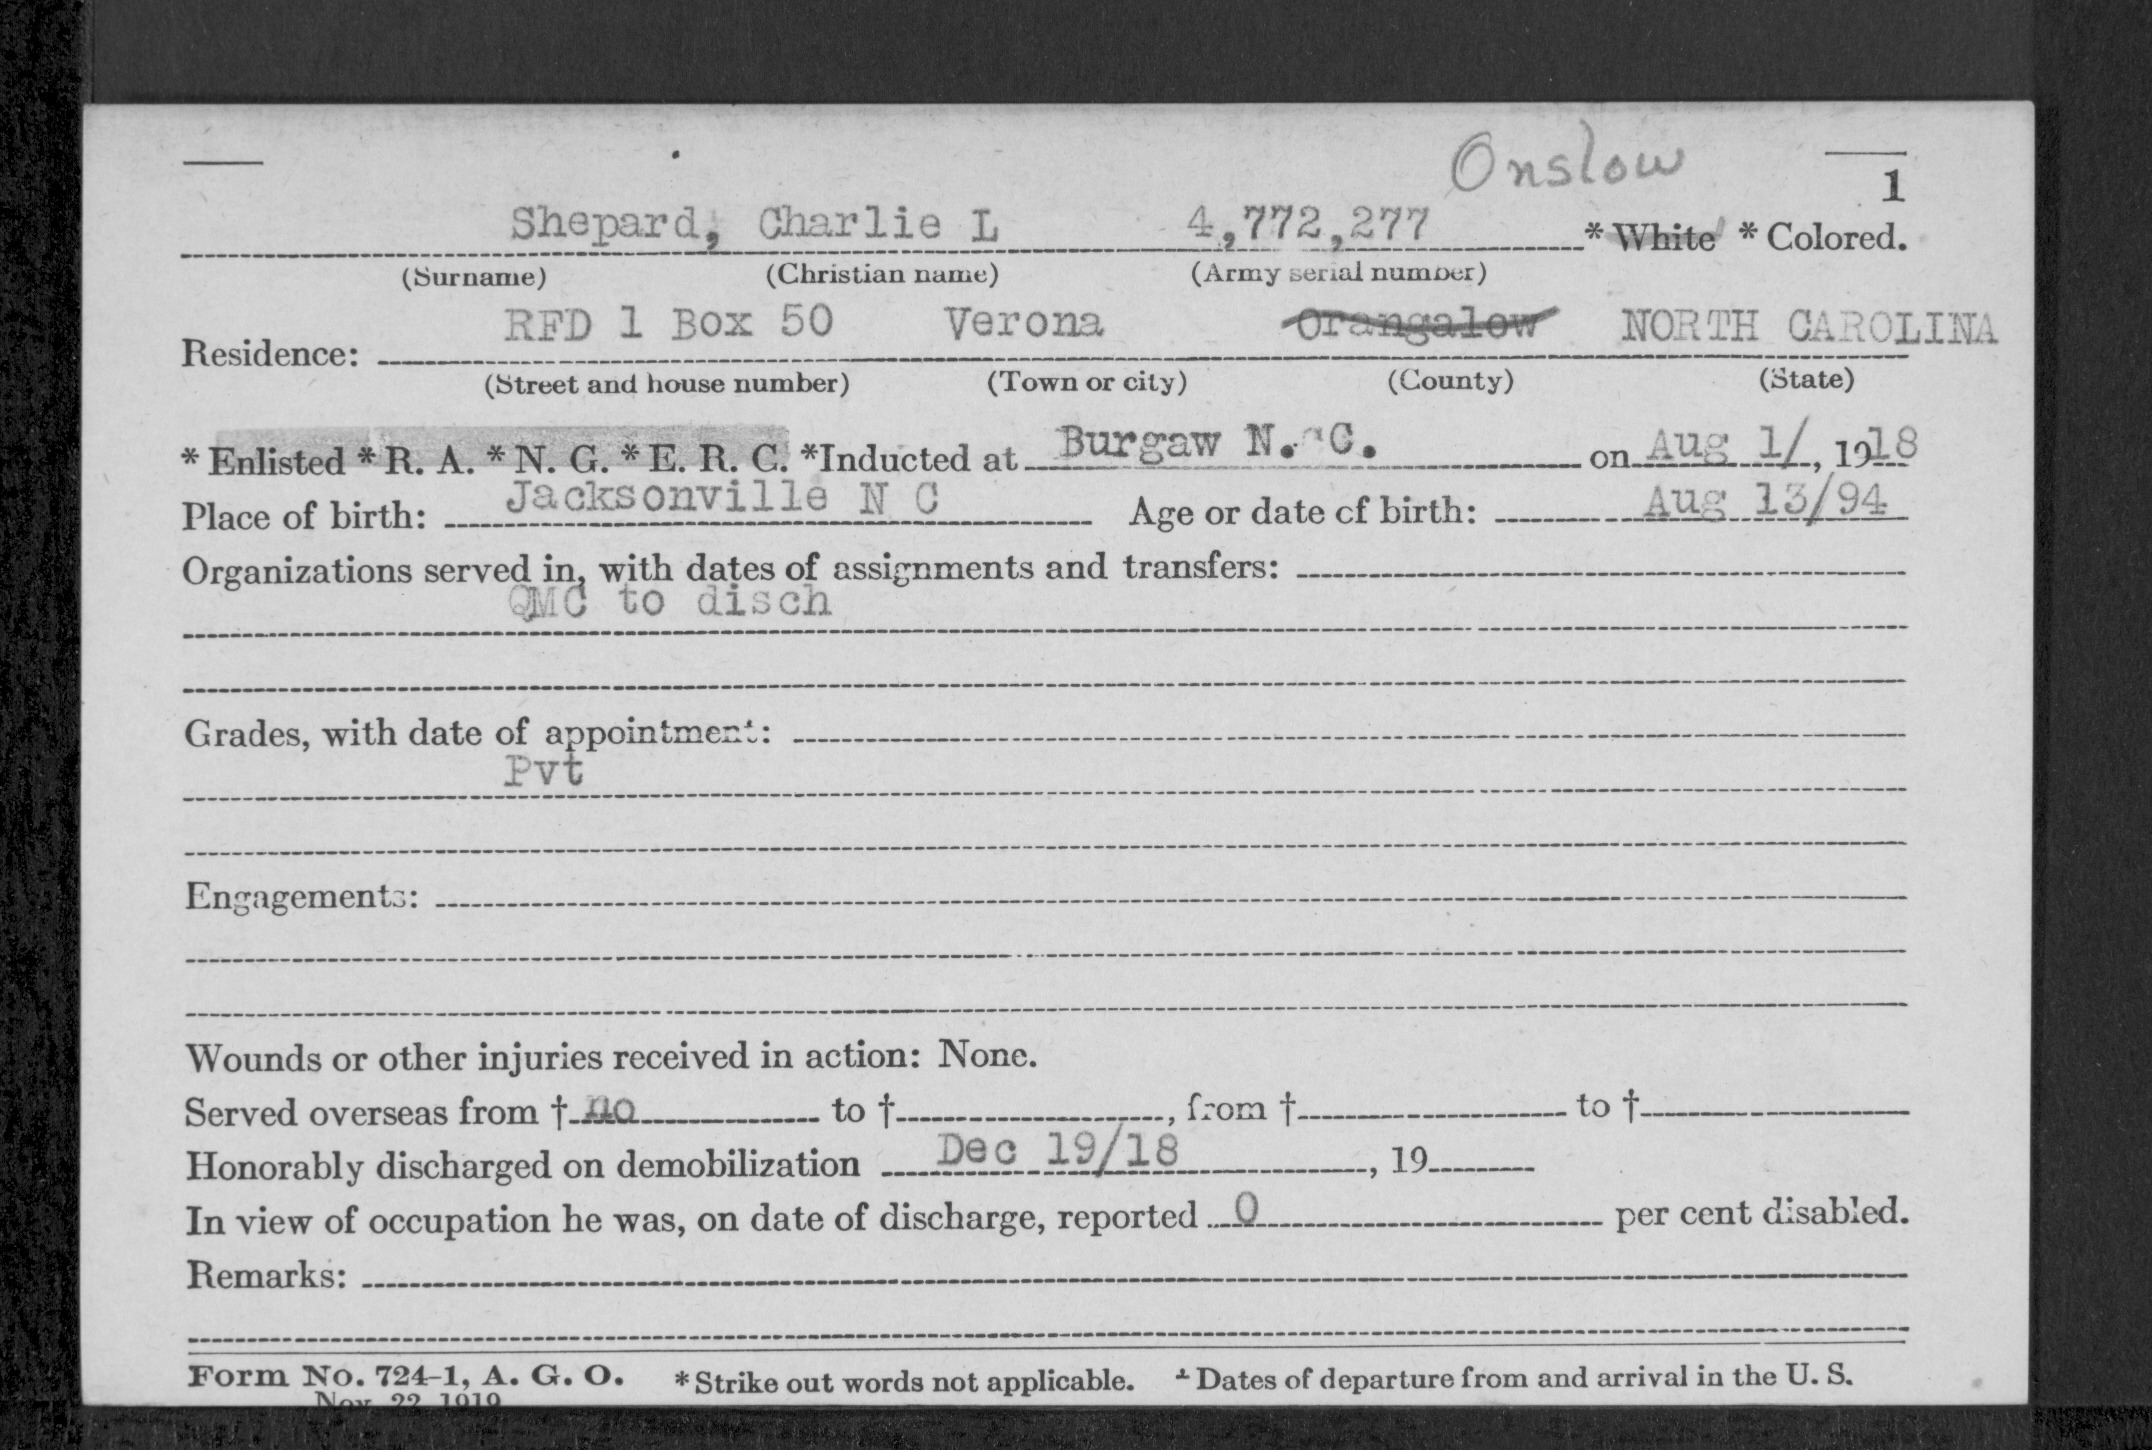 Onslow
1
Shepard, Charlie L 4,772,277 * White * Colored.
(Surname) (Christian name) (Army serial number)
RFD 1 Box 50 Verona Orangalow NORTH CAROLINA
Residence:
(Street and house number) (Town or city) (County) (State)
* Enlisted * R. A. * N. G. * E. R. C. *Inducted at Burgaw N. C. on Aug 1/, 1918
Place of birth: Jacksonville N C Age or date of birth: Aug 13/94
Organizations served in, with dates of assignments and transfers:
QMC to disch
Grades, with date of appointment:
Pvt
Engagements:
Wounds or other injuries received in action: None.
Served overseas from † no to †, from † to †
Honorably discharged on demobilization Dec 19/18, 19
In view of occupation he was, on date of discharge, reported 0 per cent disabled.
Remarks:
Form No. 724-1, A. G. O. * Strike out words not applicable. † Dates of departure from and arrival in the U. S.
Nov. 22, 1919